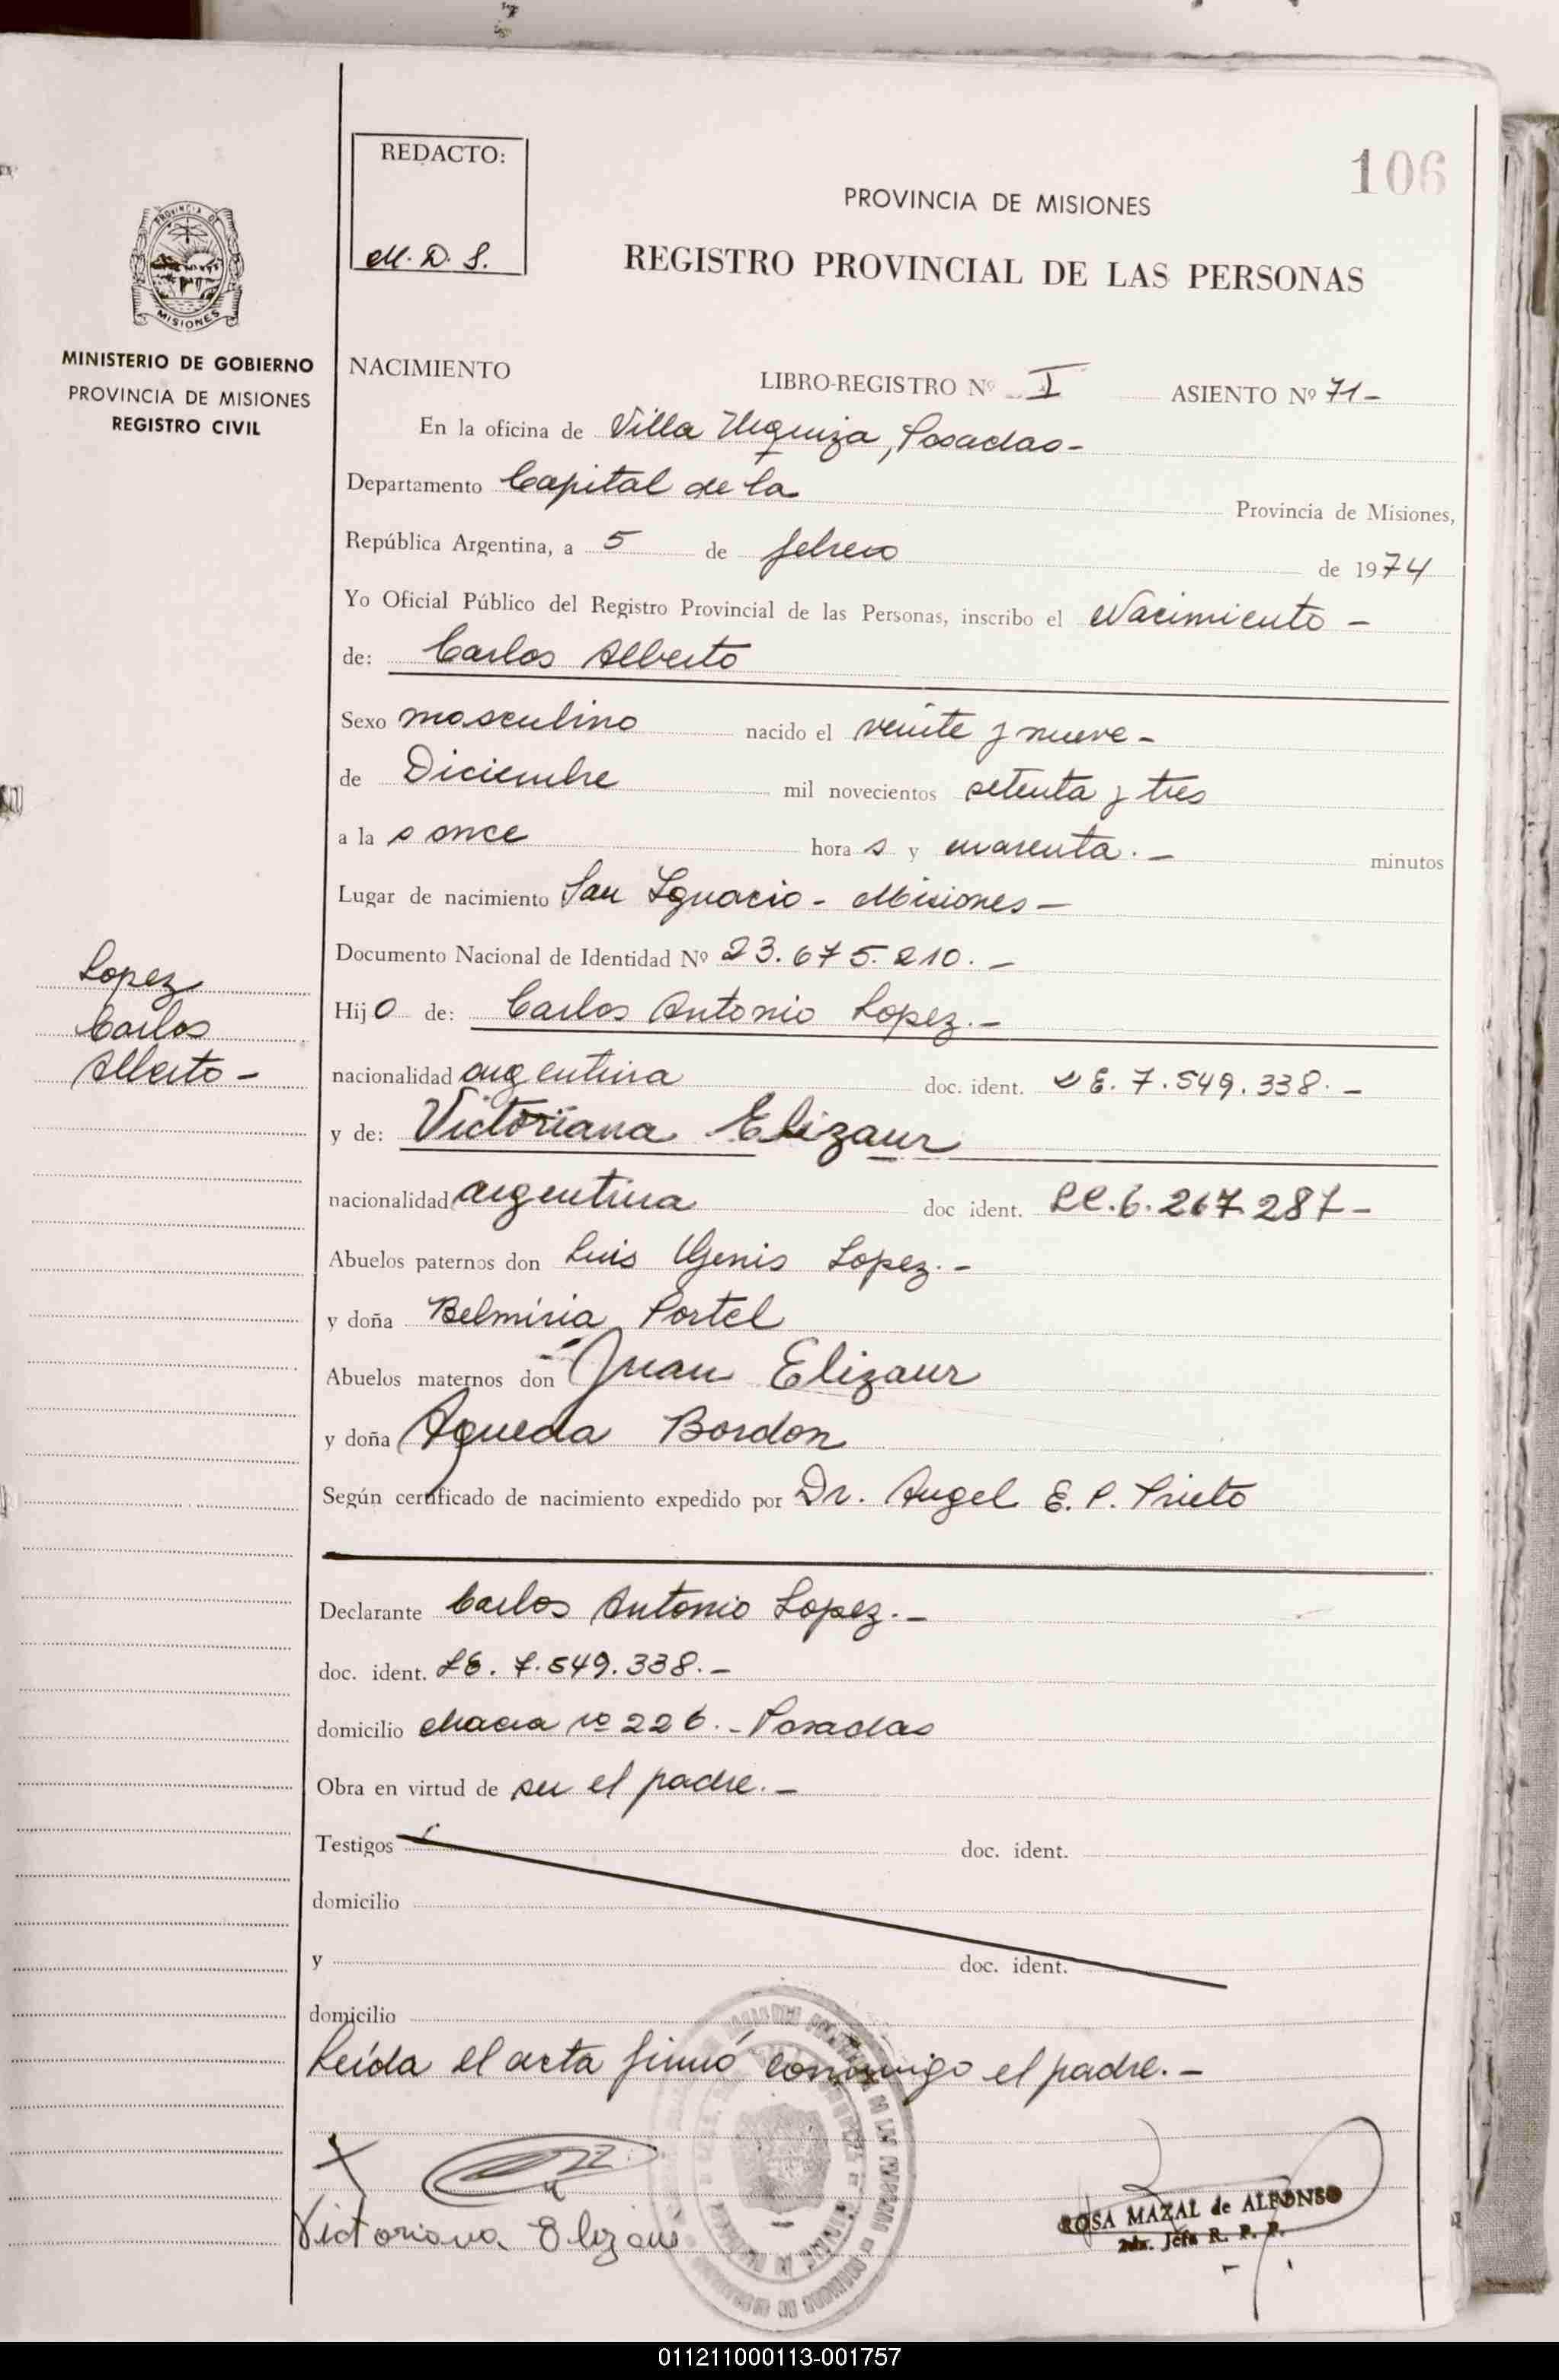 106
REDACTO:
M. D. S.
PROVINCIA DE MISIONES
REGISTRO PROVINCIAL DE LAS PERSONAS
PROVINCIA DE
MISIONES
MINISTERIO DE GOBIERNO
PROVINCIA DE MISIONES
REGISTRO CIVIL
NACIMIENTO LIBRO-REGISTRO Nº I ASIENTO Nº 71-
En la oficina de Villa Urquiza, Posadas-
Departamento Capital de la Provincia de Misiones,
República Argentina, a 5 de febrero de 1974
Yo Oficial Público del Registro Provincial de las Personas, inscribo el Nacimiento -
de: Carlos Alberto
Sexo masculino nacido el veinte y nueve -
de Diciembre mil novecientos setenta y tres
a la s once hora s y cuarenta. - minutos
Lugar de nacimiento San Ignacio - Misiones -
Documento Nacional de Identidad Nº 23.675.210. -
Lopez
Carlos
Alberto -
Hijo de: Carlos Antonio Lopez. -
nacionalidad argentina doc. ident. LE. 7.549.338. -
y de: Victoriana Elizaur
nacionalidad argentina doc ident. LC. 6.267.287 -
Abuelos paternos don Luis Genis Lopez. -
y doña Belmiria Portel
Abuelos maternos don Juan Elizaur
y doña Agueda Bordon
Según certificado de nacimiento expedido por Dr. Angel E. P. Prieto
Declarante Carlos Antonio Lopez. -
doc. ident. LE. 7.549.338. -
domicilio chacra nº 226. - Posadas
Obra en virtud de ser el padre. -
Testigos doc. ident.
domicilio
y doc. ident.
domicilio
Leída el acta firmó conmigo el padre. -
X
Victoriana Elizaur
ROSA MAZAL de ALFONSO
2da. Jefa R. P. P.
011211000113-001757